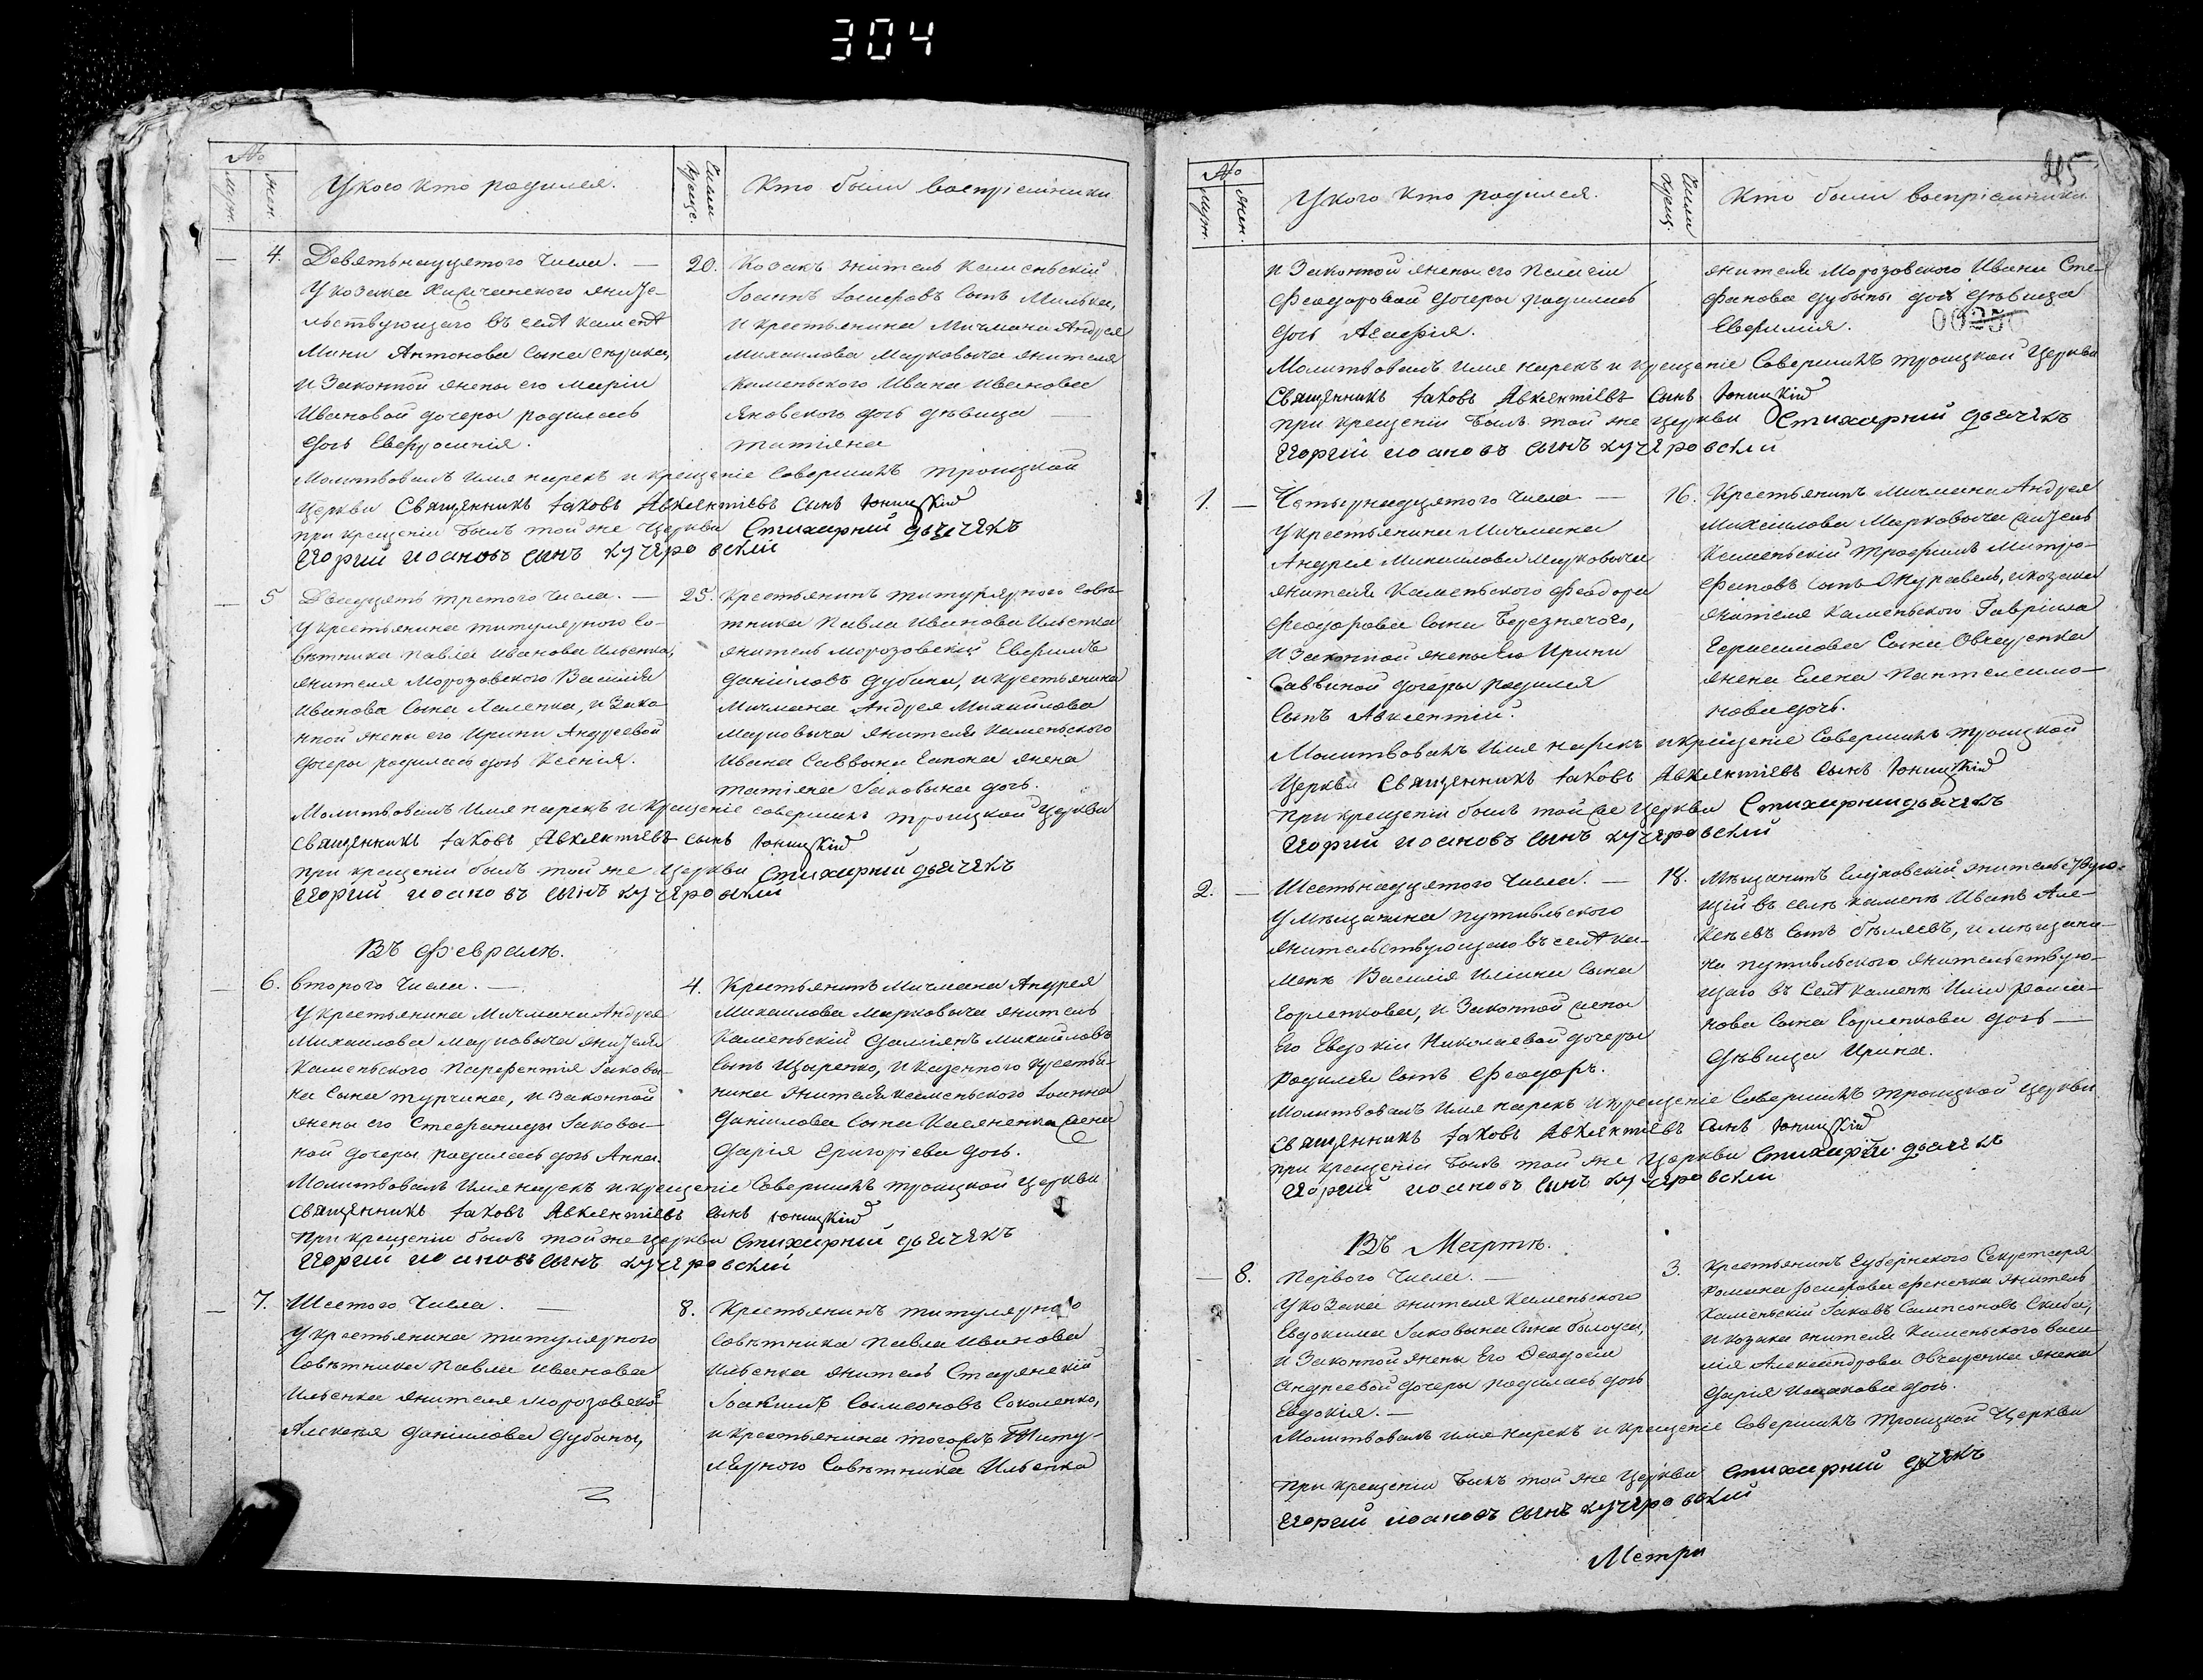 304
№
муж.
жен.
У кого кто родился.
Когда крещ.
Кто были воспріємники
— 4. Девятьнацятого числа. —
У козака Химчанского жите-
льствующаго въ селѣ каменѣ
Мини Антонова сына Сѣрика,
и Законной жены его Маріи
Ивановой дочеры родилась
дочь Евфросинія.
20. Козакъ житель каменьскій
Іоаннъ Іосифовъ сынъ Милька,
и крестьянина Мичмана Андрея
Михаилова Марковыча жителя
каменьского Ивана Иванова
Яновского дочь дѣвица —
татіяна
Молитвовалъ Имя нарекъ и крещеніе Совершилъ троицкой
церкви Священникъ Іаковъ Авксентіевъ сынъ Юницкій
при крещеніи былъ той же церкви Стихарній дьячекъ
Георгій иоановъ сынъ кучеровскій
— 5 Двацять третого числа. —
У крестьянина титулярного со-
вѣтника павла Иванова Ильенка,
жителя Морозовского Василія
Иванова сына Лаленка, и Зако-
нной жены его Ирини Андреевой
дочеры родилась дочь Ксенія.
25. Крестьянинъ титулярного совѣ-
тника Павла Иванова Ильенка
житель морозовскій Евфимъ
даніиловъ дубина, и крестьянина
Мичмана Андрея Михаилова
Марковыча жителя каменьского
Ивана Саввина Гапона жена
татіяна Іаковына дочь.
Молитвовалъ Имя нарекъ и крещеніе совершилъ троицкой церкви
священникъ Іаковъ Авксентіевъ сынъ Юницкій
при крещеніи былъ той же церкви Стихарній дьячекъ
Георгій иоановъ сынъ кучеровскій
Въ февралѣ.
— 6. второго числа. —
У крестьянина Мичмана Андрея
Михаилова Марковыча жителя
каменьского Парфентія Іаковы-
на сына турчина, и Законной
жены его Стефаниды Іаковы-
ной дочеры родилась дочь Анна.
4. Крестьянинъ Мичмана Андрея
Михаилова Марковыча житель
каменьскій Даміянъ Михаиловъ
сынъ Царенко, и казенного крестья-
нина жителя каменьского Іоанна
даніилова сына Касяненка жена
дарія Григоріева дочь.
Молитвовалъ Имя нарекъ и крещеніе Совершилъ троицкой церкви
священникъ Іаковъ Авксентіевъ сынъ Юницкій
При крещеніи былъ той же церкви Стихарній дьячекъ
Георгій иоановъ сынъ кучеровскій
— 7. Шестого числа. —
У крестьянина титулярного
Совѣтника Павла Иванова
Ильенка жителя морозовско
Алексѣя даніилова дубины,
8. Крестьянинъ титулярного
совѣтника Павла Иванова
Ильенка житель
Іоакимъ Симеоновъ Соколенко,
и крестьянина тогожъ Титу-
лярного Совѣтника Ильенка
№
муж.
жен.
У кого кто родился.
Когда крещ.
Кто были воспріємники.
00250
и Законной жены его Пелагіи
Феодоровой дочеры родилась
дочь Агафія.
жителя Морозовского Ивана Сте-
фанова дубины дочь дѣвица
Евфимия.
Молитвовалъ Имя нарекъ и крещеніе Совершилъ троицкой Церкви
Священникъ Іаковъ Авксентіевъ сынъ Юницкій
при крещеніи былъ той же церкви Стихарній дьячекъ
Георгій иоановъ сынъ кучеровскій
1. — Четырнадцятого числа —
У крестьянина Мичмана
Андрея Михаилова Марковыча
жителя Каменьского Феодора
Феодорова сына Березнячого,
и Законной жены Его Ирини
Саввиной дочеры родился
сынъ Авксентій.
16. Крестьянинъ Мичмана Андрея
Михаилова Марковыча житель
Каменьскій Трофимъ Митро-
фановъ сынъ Журавель, и козака
жителя Каменьского Гавріила
Герасимова сына Овчаренка
жена Елена Пантелеимо-
нова дочь.
Молитвовалъ Имя нарекъ и крещеніе Совершилъ троицкой
Церкви Священникъ Іаковъ Авксентіевъ сынъ Юницкій
при крещеніи былъ той же церкви Стихарній дьячекъ
Георгій иоановъ сынъ кучеровскій
2. — Шестьнадцятого числа. —
У Мѣщанина путивльского
жительствующаго въ селѣ ка-
менѣ Василія Иліина сына
Горленкова, и Законной жены
Его Евдокіи Николаевой дочеры
родился сынъ Феодоръ.
18. Мѣщанинъ Глуховскій жительствую-
щій въ селѣ каменѣ Иванъ Але-
ксѣевъ сынъ бѣляевъ, и мѣщани-
на путивльского жительствую-
щаго въ селѣ каменѣ Иліи
нова сына Горленкова дочь —
дѣвица Ирина.
Молитвовалъ имя нарекъ и крещеніе Совершилъ троицкой церкви
священникъ Іаковъ Авксентіевъ сынъ Юницкій
при крещеніи былъ той же Церкви Стихарній дьячекъ
Георгій иоановъ сынъ кучеровскій
Въ Мартѣ.
— 8. Первого числа. —
У козака жителя Каменьского
Евдокима Іаковына сына былоуса,
и Законной жены Его Феодосіи
Андреевой дочеры родилась дочь
Евдокія. —
3. Крестьянинъ Губернского Секретаря
Романа Іосифова жытель
Каменьскій Іаковъ Сампсоновъ Скиба,
и козака жителя Каменьского васи-
лія Александрова Овчаренка жена
дарія Исаакова дочь.
Молитвовалъ имя нарекъ и крещеніе Совершилъ троицкой Церкви
при крещеніи былъ той же Церкви стихарній дьячекъ
Георгій иоановъ сынъ кучеровскій
Метри